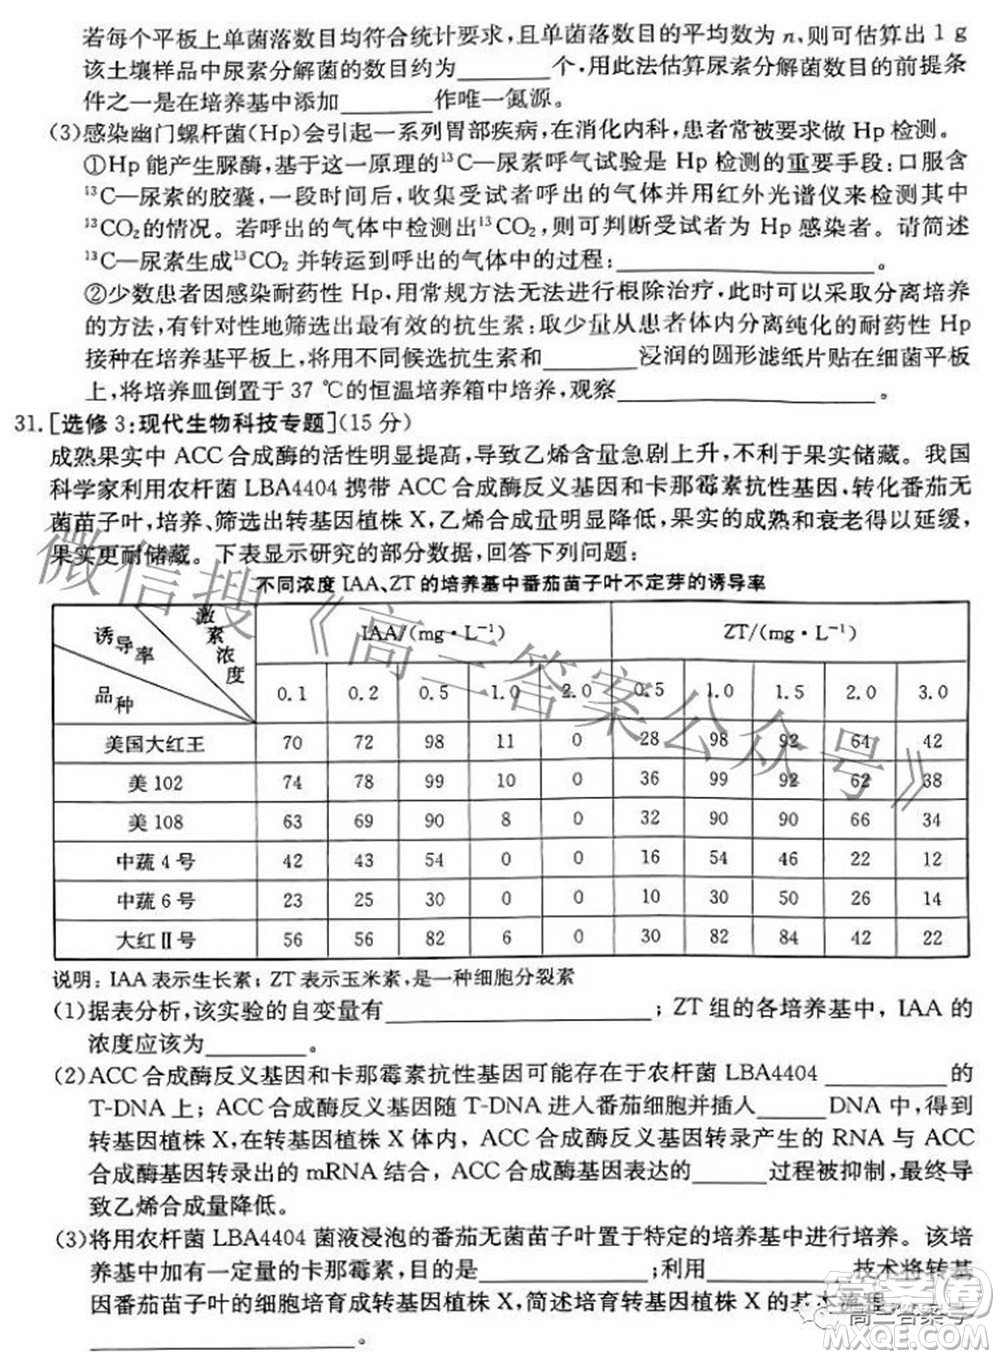 若每个平板上单菌落数目均符合统计要求,且单菌落数目的平均数为 n,则可估算出 1 g
该土壤样品中尿素分解菌的数目约为________个,用此法估算尿素分解菌数目的前提条
件之一是在培养基中添加________作唯一氮源。
(3)感染幽门螺杆菌(Hp)会引起一系列胃部疾病,在消化内科,患者常被要求做 Hp 检测。
①Hp能产生脲酶,基于这一原理的¹³C—尿素呼气试验是 Hp 检测的重要手段:口服含
¹³C—尿素的胶囊,一段时间后,收集受试者呼出的气体并用红外光谱仪来检测其中
¹³CO₂的情况。若呼出的气体中检测出¹³CO₂,则可判断受试者为 Hp 感染者。请简述
¹³C—尿素生成¹³CO₂ 并转运到呼出的气体中的过程:________________。
②少数患者因感染耐药性 Hp,用常规方法无法进行根除治疗,此时可以采取分离培养
的方法,有针对性地筛选出最有效的抗生素:取少量从患者体内分离纯化的耐药性 Hp
接种在培养基平板上,将用不同候选抗生素和________浸润的圆形滤纸片贴在细菌平板
上,将培养皿倒置于 37 ℃的恒温培养箱中培养,观察________________
31. [选修 3:现代生物科技专题](15 分)
成熟果实中 ACC 合成酶的活性明显提高,导致乙烯含量急剧上升,不利于果实储藏。我国
科学家利用农杆菌 LBA4404 携带 ACC 合成酶反义基因和卡那霉素抗性基因,转化番茄无
菌苗子叶,培养、筛选出转基因植株 X,乙烯合成量明显降低,果实的成熟和衰老得以延缓,
果实更耐储藏。下表显示研究的部分数据,回答下列问题:
不同浓度 IAA、ZT 的培养基中番茄苗子叶不定芽的诱导率
诱导率 激素浓度 品种 IAA/(mg·L⁻¹) ZT/(mg·L⁻¹)
0.1 0.2 0.5 1.0 2.0 0.5 1.0 1.5 2.0 3.0
美国大红王 70 72 98 11 0 28 98 92 64 42
美 102 74 78 99 10 0 36 99 92 62 38
美 108 63 69 90 8 0 32 90 90 66 34
中蔬 4 号 42 43 54 0 0 16 54 46 22 12
中蔬 6 号 23 25 30 0 0 10 30 30 26 14
大红Ⅱ号 56 56 82 6 0 30 82 84 42 22
说明:IAA 表示生长素;ZT 表示玉米素,是一种细胞分裂素
(1)据表分析,该实验的自变量有________________;ZT 组的各培养基中,IAA 的
浓度应该为________。
(2)ACC 合成酶反义基因和卡那霉素抗性基因可能存在于农杆菌 LBA4404 ________的
T-DNA 上;ACC 合成酶反义基因随 T-DNA 进入番茄细胞并插入____DNA 中,得到
转基因植株 X,在转基因植株 X 体内,ACC 合成酶反义基因转录产生的 RNA 与 ACC
合成酶基因转录出的 mRNA 结合,ACC 合成酶基因表达的______过程被抑制,最终导
致乙烯合成量降低。
(3)将用农杆菌 LBA4404 菌液浸泡的番茄无菌苗子叶置于特定的培养基中进行培养。该培
养基中加有一定量的卡那霉素,目的是____________;利用__________技术将转基
因番茄苗子叶的细胞培育成转基因植株 X,简述培育转基因植株 X 的基本流程:
________________。
微信搜《高三答案公众号》
高三答案号
答案圈
MXQE.COM